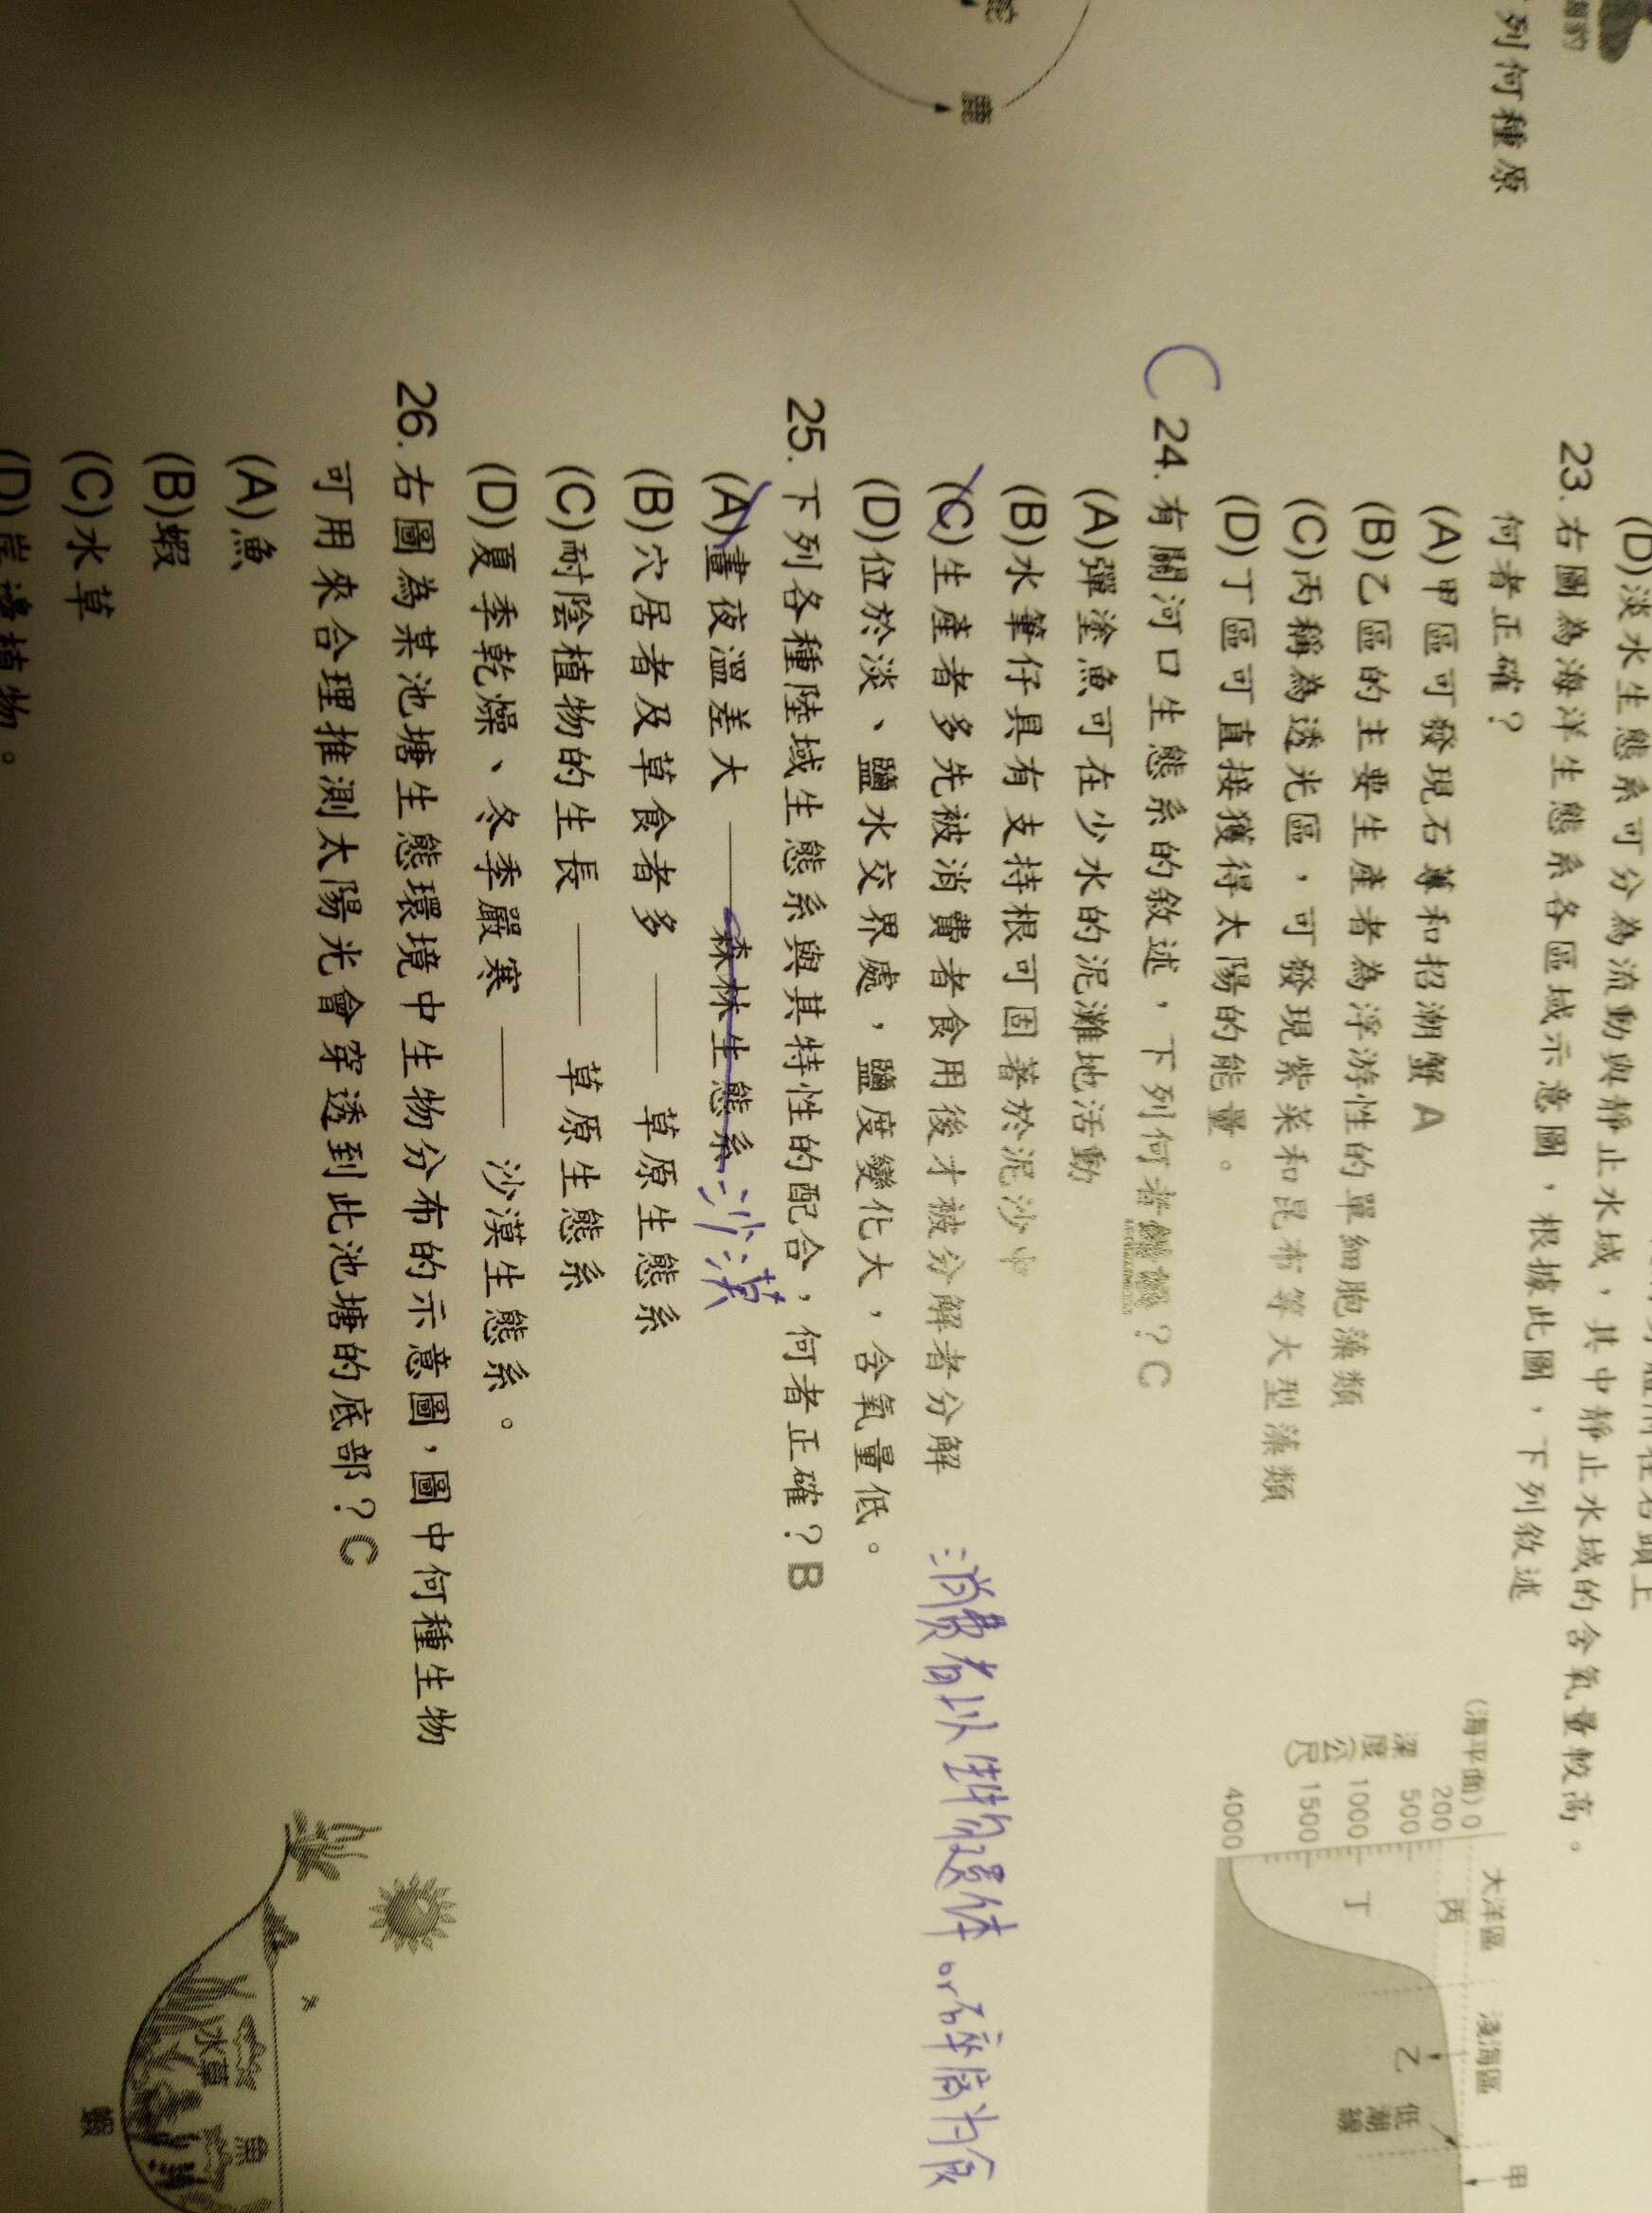 列何種原
(D)淡水生態系可分為流動與靜止水域，其中靜止水域的含氧量較高。
23.右圖為海洋生態系各區域示意圖，根據此圖，下列敘述
何者正確？
(A)甲區可發現石蓴和招潮蟹 A
(B)乙區的主要生產者為浮游性的單細胞藻類
(C)丙稱為透光區，可發現紫菜和昆布等大型藻類
(D)丁區可直接獲得太陽的能量。
(海平面) 0
200
500
1000
1500
4000
深度(公尺)
大洋區
淺海區
甲
乙
丙
丁
低潮線
C 24.有關河口生態系的敘述，下列何者錯誤？C
(A)彈塗魚可在少水的泥灘地活動
(B)水筆仔具有支持根可固著於泥沙中
(C)生產者多先被消費者食用後才被分解者分解
消費者以生物遺体or碎屑为食
(D)位於淡、鹽水交界處，鹽度變化大，含氧量低。
25.下列各種陸域生態系與其特性的配合，何者正確？B
(A)晝夜溫差大 —— 森林生態系 沙漠
(B)穴居者及草食者多 —— 草原生態系
(C)耐陰植物的生長 —— 草原生態系
(D)夏季乾燥、冬季嚴寒 —— 沙漠生態系。
26.右圖為某池塘生態環境中生物分布的示意圖，圖中何種生物
可用來合理推測太陽光會穿透到此池塘的底部？C
(A)魚
(B)蝦
(C)水草
(D)岸邊植物。
水草
魚
蝦